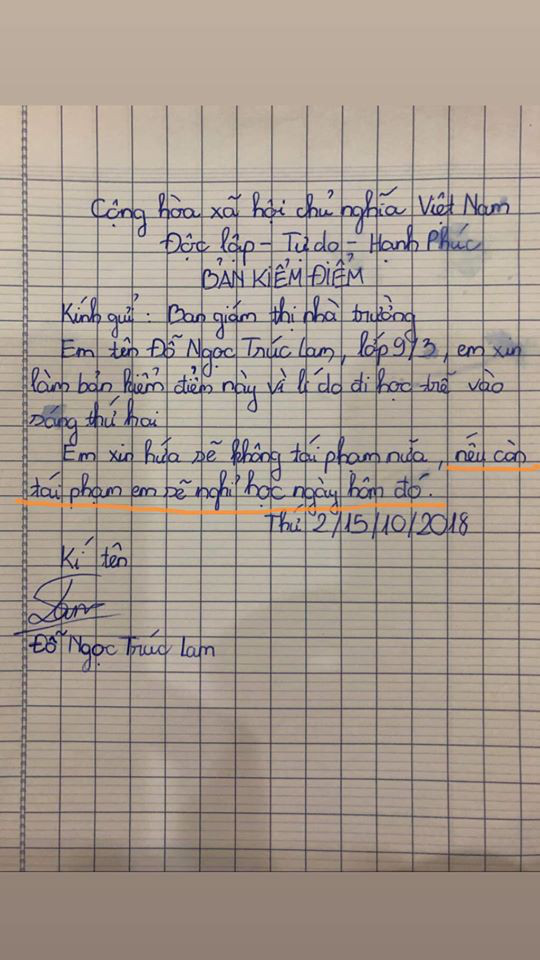 Cộng hòa xã hội chủ nghĩa Việt Nam
Độc lập - Tự do - Hạnh Phúc
BẢN KIỂM ĐIỂM
Kính gửi : Ban giám thị nhà trường
Em tên Đỗ Ngọc Trúc Lam, lớp 9/3, em xin
làm bản kiểm điểm này vì lí do đi học trễ vào
sáng thứ hai
Em xin hứa sẽ không tái phạm nữa, nếu còn
tái phạm em sẽ nghỉ học ngày hôm đó.
Thứ 2/15/10/2018
Kí tên
Lam
Đỗ Ngọc Trúc Lam